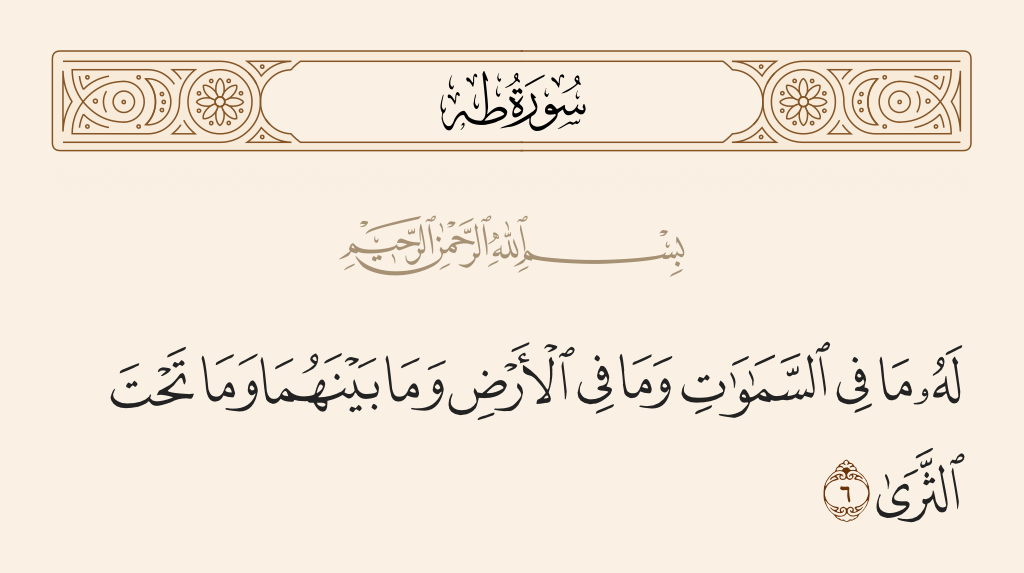 سُورَةُ طه
بِسْمِ ٱللَّهِ ٱلرَّحْمَٰنِ ٱلرَّحِيمِ
لَهُۥ مَا فِى ٱلسَّمَٰوَٰتِ وَمَا فِى ٱلْأَرْضِ وَمَا بَيْنَهُمَا وَمَا تَحْتَ
ٱلثَّرَىٰ ٦